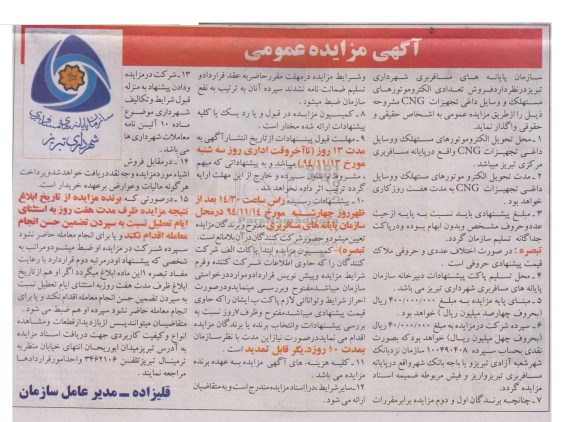 آگهی مزایده عمومی
سازمان پایانه های مسافربری شهرداری
تبریز درنظر دارد فروش تعدادی الکتروموتورهای
مستهلک و وسایل داغی تجهیزات CNG مشروحه
ذیل را از طریق مزایده عمومی به اشخاص حقیقی و
حقوقی واگذار نماید.
۱ـ محل تحویل الکتروموتورهای مستهلک و وسایل
داغی تجهیزات CNG واقع در پایانه مسافربری
مرکزی تبریز میباشد.
۲ـ مدت تحویل الکتروموتورهای مستهلک و وسایل
داغی تجهیزات CNG به مدت هفت روز کاری
خواهد بود.
۳ـ مبلغ پیشنهادی باید نسبت به پایه از حیث
عدد و حروف مشخص وبدون ابهام بوده و در پاکت
جداگانه تسلیم سازمان گردد.
تبصره : در صورت اختلاف عددی و حروفی ملاک
قیمت پیشنهادی حروفی است.
۴ـ محل تسلیم پاکت پیشنهادات دبیرخانه سازمان
پایانه های مسافربری شهرداری تبریز می باشد.
۵ـ مبنای پایه مزایده به مبلغ ۴۰۰/۰۰۰/۰۰۰ ریال
(بحروف چهارصد میلیون ریال) خواهد بود.
۶ـ سپرده شرکت در مزایده به مبلغ ۴۰/۰۰۰/۰۰۰ ریال
(بحروف چهل میلیون ریال) خواهد بود که بصورت
نقدی بحساب سپرده ۱۰۰۴۹۰۴۰۸ سازمان نزد بانک
شهر شعبه آزادی تبریز و یا باجه بانک شهر واقع در پایانه
مسافربری تبریز واریز و فیش مربوطه ضمیمه اسناد
مزایده گردد.
۷ـ چنانچه برندگان اول و دوم مزایده برابر مقررات
وشرایط مزایده در مهلت مقرر حاضر به عقد قرارداد و
تسلیم ضمانت نامه نشدند سپرده آنان به ترتیب به نفع
سازمان ضبط میشود.
۸ـ کمیسیون مزایده در قبول و یا رد یک یا کلیه
پیشنهادات ارائه شده مختار است.
۹ـ مهلت قبول پیشنهادات از تاریخ انتشار آگهی به
مدت ۱۳ روز (تا آخر وقت اداری روز سه شنبه
مورخ ۹۴/۱۱/۱۳) میباشد و به پیشنهاداتی که مبهم
، مشروط و بدون سپرده و خارج از این مهلت ارایه
گردد ترتیب اثر داده نخواهد شد.
۱۰ـ پیشنهادات رسیده راس ساعت ۱۴/۳۰ بعد از
ظهر روز چهارشنبه مورخ ۹۴/۱۱/۱۴ در محل
سازمان پایانه های مسافربری مفتوح و برندگان مزایده
تعیین میشود و حضور شرکت کنندگان در آن بلامانع است.
تبصره ۵: کمیسیون مزایده ابتدا پاکات الف شرکت
کنندگان را که حاوی اطلاعات شرکت کننده و فرم
شرایط مزایده و پیش نویس قرارداد و موارد درخواستی
سازمان میباشد مفتوح و بررسی مینماید و در صورت
احراز شرایط و توانائی لازم پاکت ب ایشان را که حاوی
قیمت پیشنهادی میباشد مفتوح وظرف ۷ روز نسبت به
بررسی پیشنهادات و انتخاب برنده یا برندگان مزایده
اقدام می نماید در صورت نیاز این مدت با نظر سازمان
بمدت ۱۰ روز دیگر قابل تمدید است.
۱۱ـ کلیه هزینه های آگهی مزایده به عهده برنده
مزایده می باشد.
۱۲ـ سایر شرایط در اسناد مزایده مندرج است و به متقاضیان
ارائه می شود.
۱۳ـ شرکت در مزایده
ودادن پیشنهاد به منزله
قبول شرایط و تکالیف
شهرداری موضوع
ماده ۱۰ آئین نامه
معاملات شهرداری ها
می باشد.
۱۴ـ در مقابل فروش
اشیاء مورد مزایده وجه نقد دریافت خواهد شد و پرداخت
هر گونه مالیات و عوارض بر عهده خریدار است.
۱۵ـ در صورتی که برنده مزایده از تاریخ ابلاغ
نتیجه مزایده ظرف مدت هفت روز به استثنای
ایام تعطیل نسبت به سپردن تضمین حسن انجام
معامله اقدام نکند و یا برای انجام معامله حاضر نشود
سپرده شرکت در مزایده او ضبط میشود و مراتب به
شخصی که پیشنهاد او در مرتبه دوم قرار دارد با رعایت
مفاد تبصره ۱ این ماده ابلاغ میگردد اگر او هم از تاریخ
ابلاغ ظرف مدت هفت روز به استثنای ایام تعطیل نسبت
به سپردن تضمین حسن انجام معامله اقدام نکند و یا برای
انجام معامله حاضر نشود سپرده او هم ضبط می شود.
متقاضیان میتوانند پس از بازدید از قطعات و مشاهده
انواع و کیفیت کاربردی جهت دریافت اسناد مزایده
به آدرس تبریز میدان ابوریحان انتهای خیابان منظریه
ترمینال تبریز تلفن ۳۴۶۲۱۰۶ واحد امور قراردادها
مراجعه نمایند.
قلیزاده ـ مدیر عامل سازمان